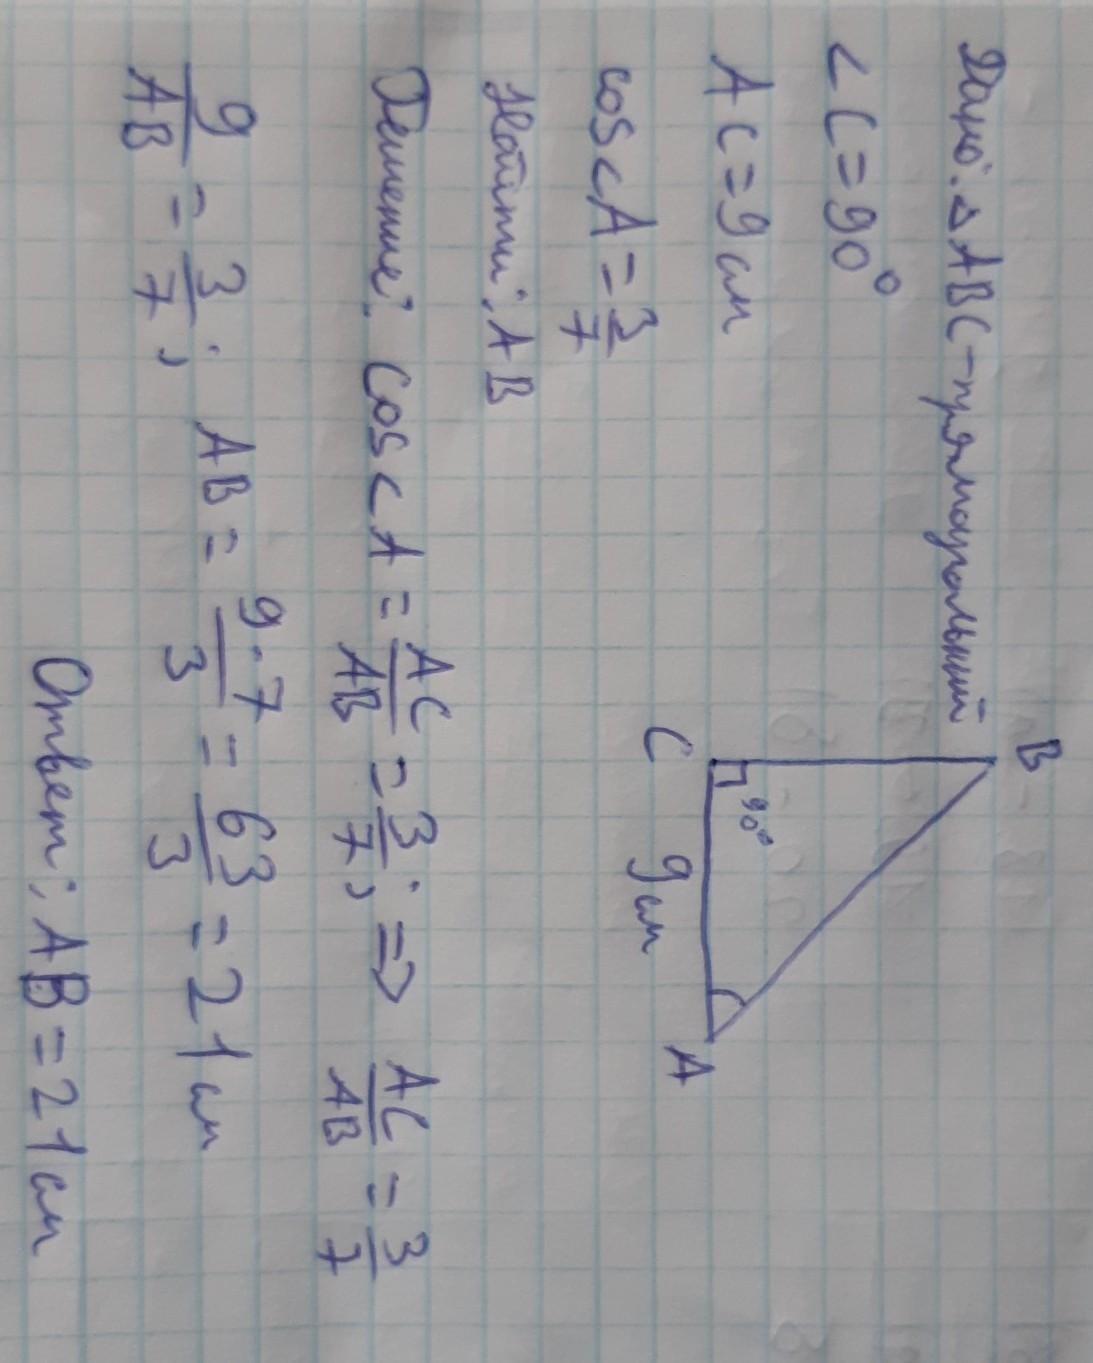 Дано: △ABC-прямоугольный
∠C=90°
AC=9см
cos∠A=3/7
Найти: AB
B
C
90°
9см
A
Решение: cos∠A=AC/AB=3/7; ⇒ AC/AB=3/7
9/AB=3/7; AB=9·7/3=63/3=21см
Ответ: AB=21см